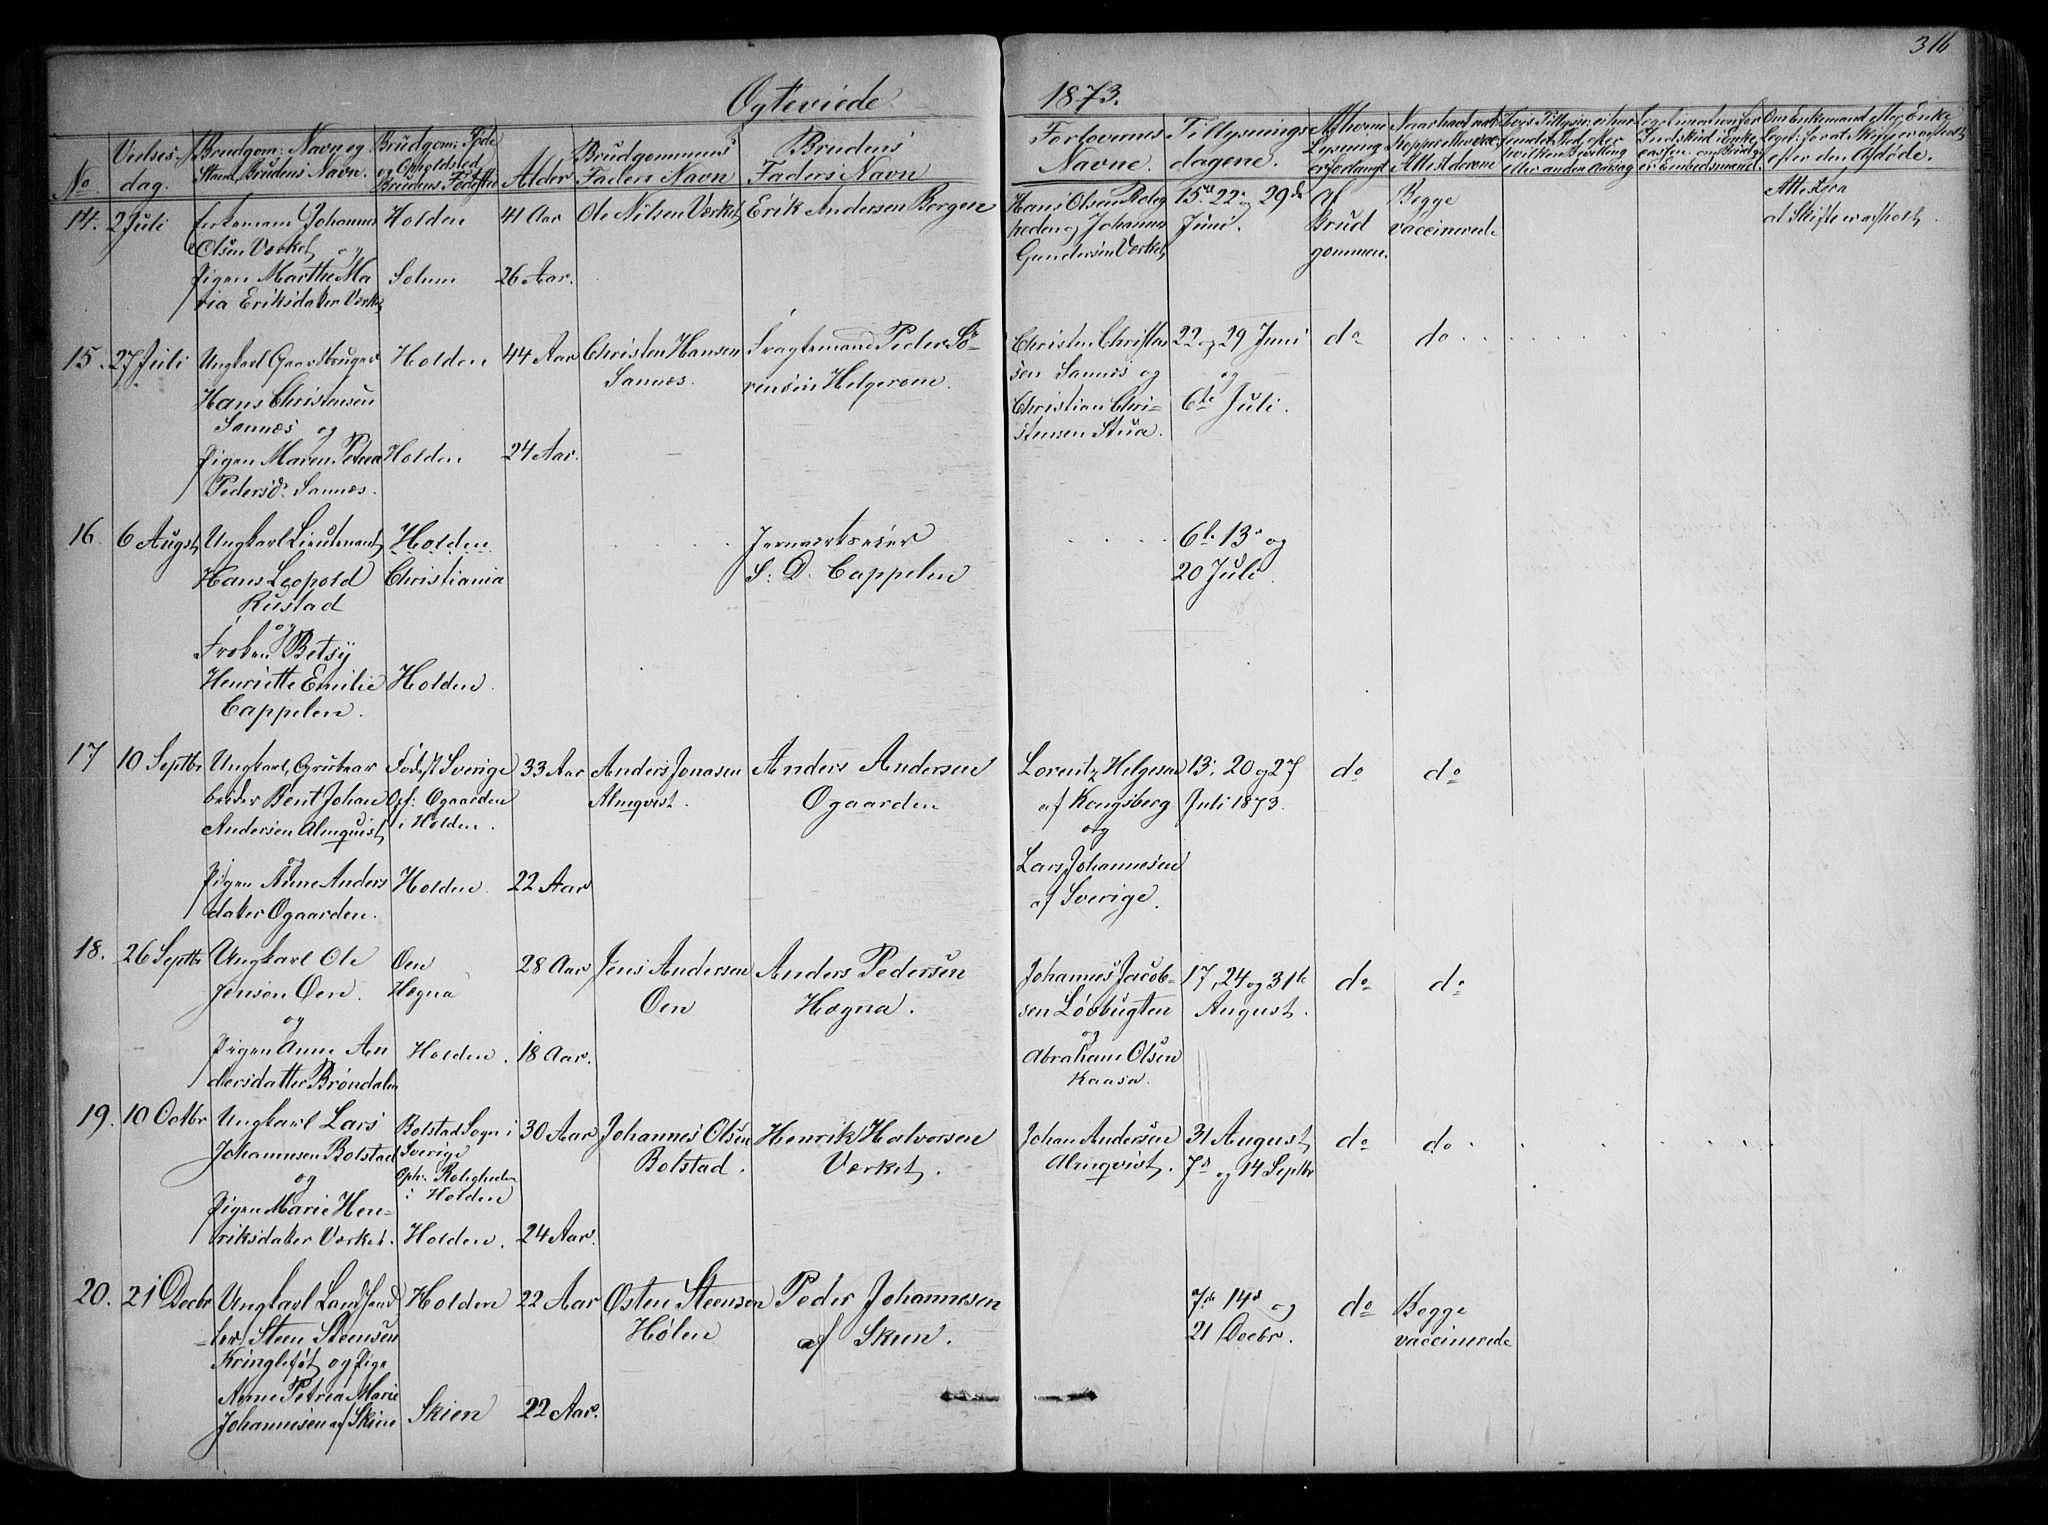 316
Ogteviede 1873.
No.
Vielses-
dag.
Brudgom: Navn og
Stand, Brudens Navn.
Brudgom: Føde
og Opholdsted
Brudens Fødested
Alder
Brudgommens
Faders Navn
Brudens
Faders Navn
Forlovernes
Navne.
Tillysnings
dagene.
Af hvem
Lysning
er forlangt
Om Enkemand eller Enke
efter den Afdøde.
14. 2 Juli
Enkemand Johannes
Olsen Værket og
Pigen Marthe Ma
ria Eriksdatter Værket
Holden
Solum
41 Aar
26 Aar.
Ole Nilsen Værket
Erik Andersen Borgen
Hans Olsen
og Johannes
Gundersen Værket
15de 22 og 29de
Juni.
Af
Brud
gommen.
Begge
vaccinerede
Attest
at Skifte er afholdt.
15. 27 Juli
Ungkarl Gaardbruger
Hans Christensen
Sannes og
Pigen Maren Petrea
Pedersdr Sannes.
Holden
Holden
44 Aar
24 Aar.
Christen Hansen
Sannes.
Fragtemand Peder Sö-
rensen Helgeroe.
Christen Christen
sen Sannes og
Christian Chri-
stensen Stua.
22 og 29 Juni
og
6te Juli.
do
do
16. 6 Augst
Ungkarl Lieutenant
Hans Leopold
Rustad
og
Frøken Betsÿ
Henriette Emilie
Cappelen.
Holden
Christiania
Holden.
Jernværkseier
S: D. Cappelen
6te 13de og
20 Juli.
17 10 Septbr
Ungkarl, Grubear
beider Bent Johan
Andersen Almquist,
og
Pigen Anne Anders
datter Ogaarden.
Födt i Sverige
Opf: Ogaarden
i Holden.
Holden.
33 Aar
22 Aar
Anders Jonasen
Almqvist.
Anders Andersen
Ogaarden
Lorentz Helgesen
af Kongsberg
og
Lars Johannesen
af Sverige.
13, 20 og 27
Juli 1873.
do
do
18. 26 Septbr
Ungkarl Ole
Jensen Oen.
og
Pigen Anne An
dersdatter Brøndalen
Oen
Hægna
Holden.
28 Aar
18 Aar.
Jens Andersen
Oen
Anders Pedersen
Hægna.
Johannes Jacob-
sen Løvbugten
og
Abraham Olsen
Kaasa.
17, 24 og 31te
August.
do
do
19. 10 Octbr
Ungkarl Lars
Johannesen Bolstad
og
Pigen Marie Hen-
riksdatter Værket.
Bolstad Sogn i
Sverige
Oph: Roligheden
i Holden
Holden.
30 Aar
24 Aar.
Johannes Olsen
Bolstad.
Henrik Halvorsen
Værket.
Johan Andersen
Almqvist.
31 August,
7de og 14 Septbr
do
do
20. 21 Decbr
Ungkarl Landhand
-ler, Steen Steensen
Kringlefôt og Pige
Anne Petrea Marie
Johannesen af Skien
Holden
Skien
22 Aar
22 Aar.
Østen Steensen
Hølen
Peder Johannesen
af Skien.
7de 14de og
21 Decbr.
do
Begge
vaccinerede